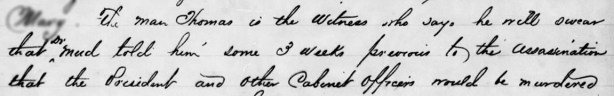 Mary. The man Thomas is the Witness who says he will swear
that Dr Mud told him some 3 weeks previous to the assasination
that the President and other Cabinet Officers would be murdered